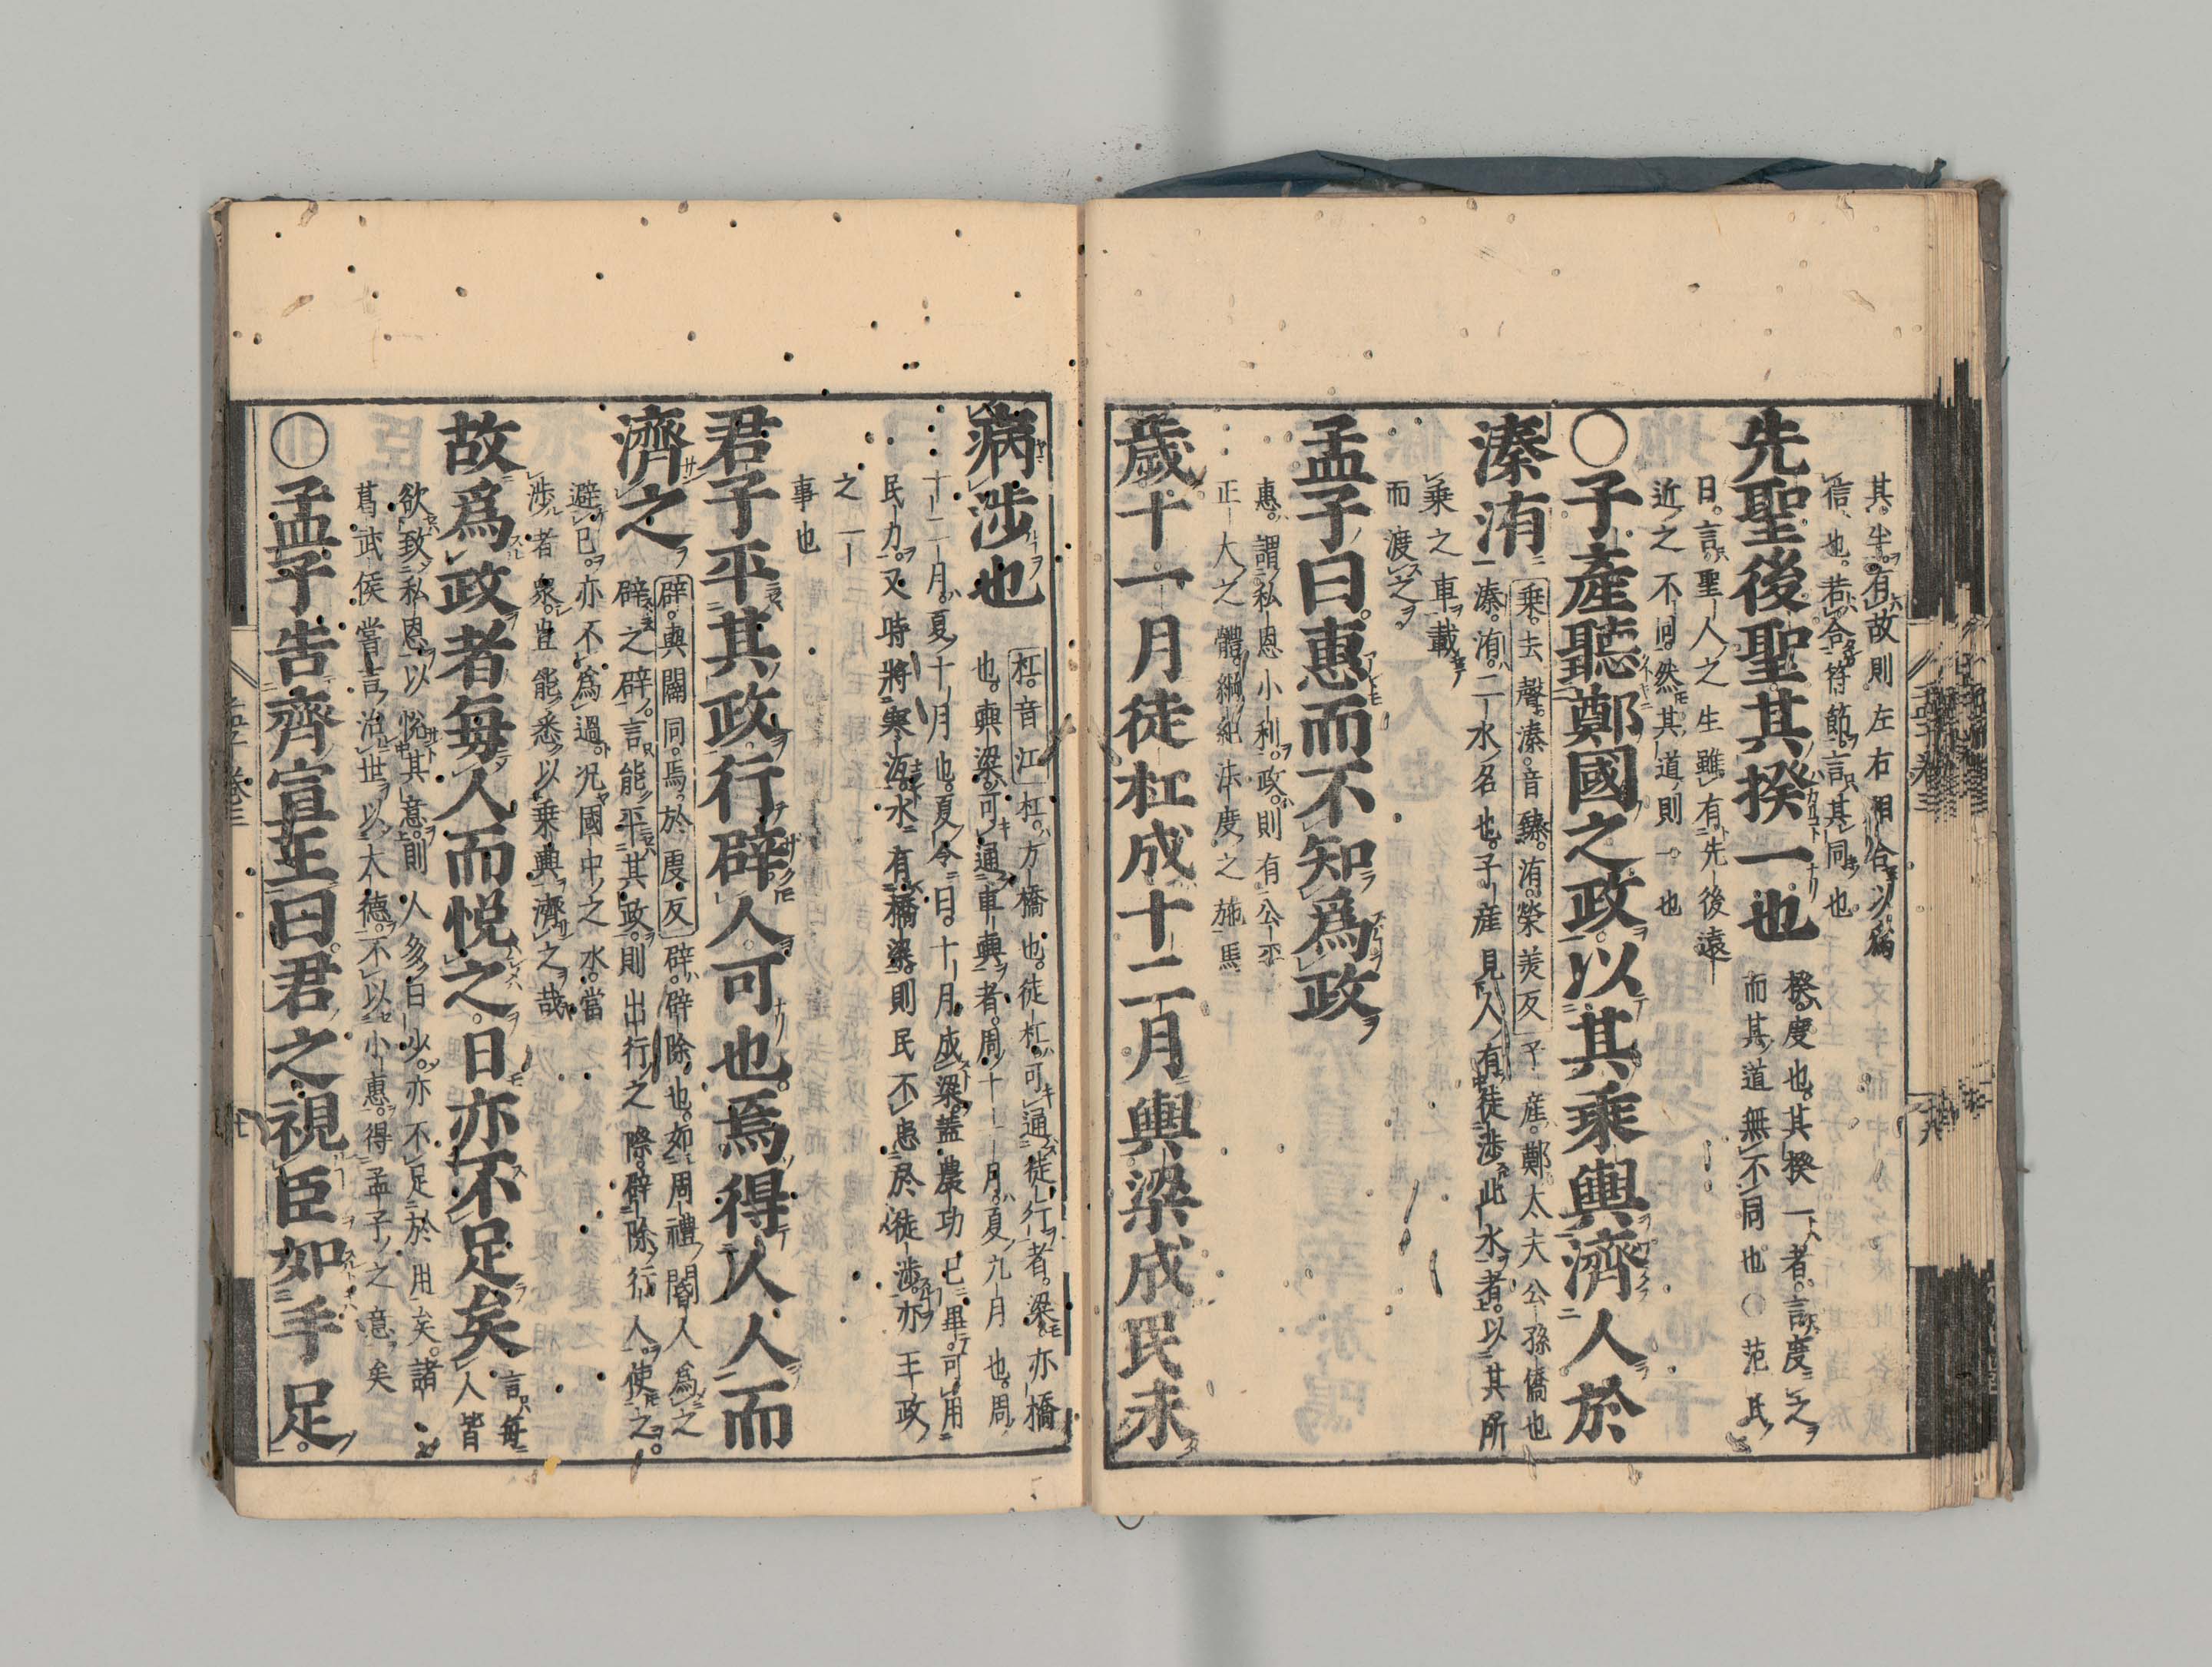 其半。有故則左右相合以爲
信也。若合符節。言其同也
先聖後聖其揆一也
揆。度也。其揆一者。言度之
而其道無不同也○范氏
曰。言聖人之生雖有先後遠
近之不同。然其道則一也
○子產聽鄭國之政。以其乘輿濟人於
溱洧
乗。去聲。溱。音臻。洧。榮美反
子産。鄭大夫公孫僑也
溱。洧。二水名也。子産見人有徒渉此水者。以其所
乗之車載
而渡之
孟子曰。惠而不知爲政
惠。謂私恩小利。政。則有公平
正大之體。綱紀法度之施焉
歲十一月徒杠成十二月輿梁成民未
病涉也
杠。音江
杠。方橋也。徒杠。可通徒行者。梁亦橋
也。輿梁。可通車輿者。周十一月。夏九月也。周
十二月。夏十月也。夏令曰。十月成梁。蓋農功已畢。可用
民力。又時將寒沍。水有橋梁。則民不患於徒渉。亦王政
之一
事也
君子平其政行辟人可也。焉得人人而
濟之
辟。與闢同。焉。於虔反
辟。辟除也。如周禮閽人爲之
辟之辟。言能平其政。則出行之際。辟除行人。使之
避己。亦不爲過。况國中之水。當
渉者衆。豈能悉以乗輿濟之哉
故爲政者每人而悅之。日亦不足矣
言每
人皆
欲致私恩以悅其意。則人多日少。亦不足於用矣。諸
葛武侯嘗言。治世以大德。不以小惠。得孟子之意矣
○孟子告齊宣王曰。君之視臣如手足。
孟子卷三